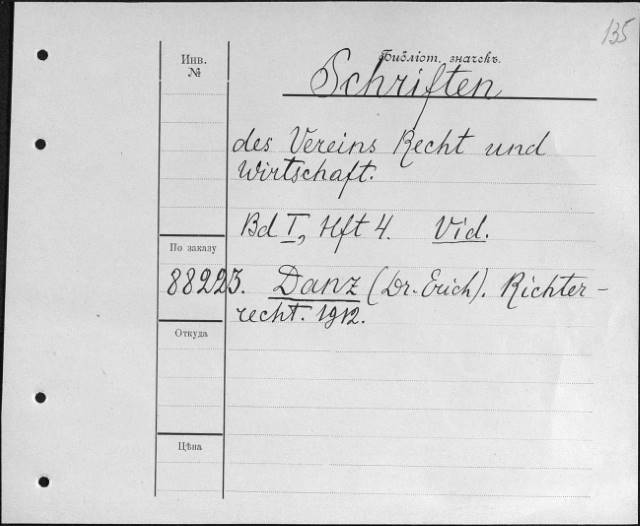 135
Инв.
№
Библіот. значекъ.
Schriften
des Vereins Recht und
Wirtschaft.
Bd I, Hft 4. Vid.
По заказу
88223. Danz (Dr. Erich). Richter-
recht. 1912.
Откуда
Цѣна